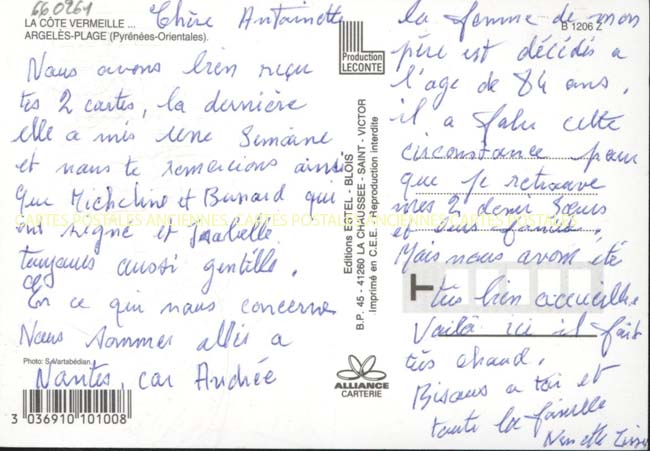 660961
LA CÔTE VERMEILLE ...
ARGELÈS-PLAGE (Pyrénées-Orientales).
B 1206 Z
Production
LECONTE
Chère Antoinette
Nous avons bien reçu
tes 2 cartes, la dernière
elle a mis une Semaine
et nous te remercions ainsi
que Micheline et Bernard qui
ont signé et Isabelle
toujours aussi gentille.
En ce qui nous concerne
Nous sommes allés a
Nantes, car Andrée
la femme de mon
père est décidés a
l'age de 84 ans.
il a falu cette
circonstance pour
que je retrouve
mes 2 demi Sœurs
et leurs familles.
Mais nous avons été
très bien accueillie
Voilà ici il fait
très chaud.
Bisous a toi et
toute la famille
Editions ESTEL - BLOIS
B.P. 45 - 41260 LA CHAUSSÉE - SAINT - VICTOR
Imprimé en C.E.E. - Reproduction interdite
CARTES POSTALES ANCIENNES CARTES POSTALES ANCIENNES CARTES POSTALES
Photo: S.Vartabédian.
3 036910 101008
ALLIANCE
CARTERIE